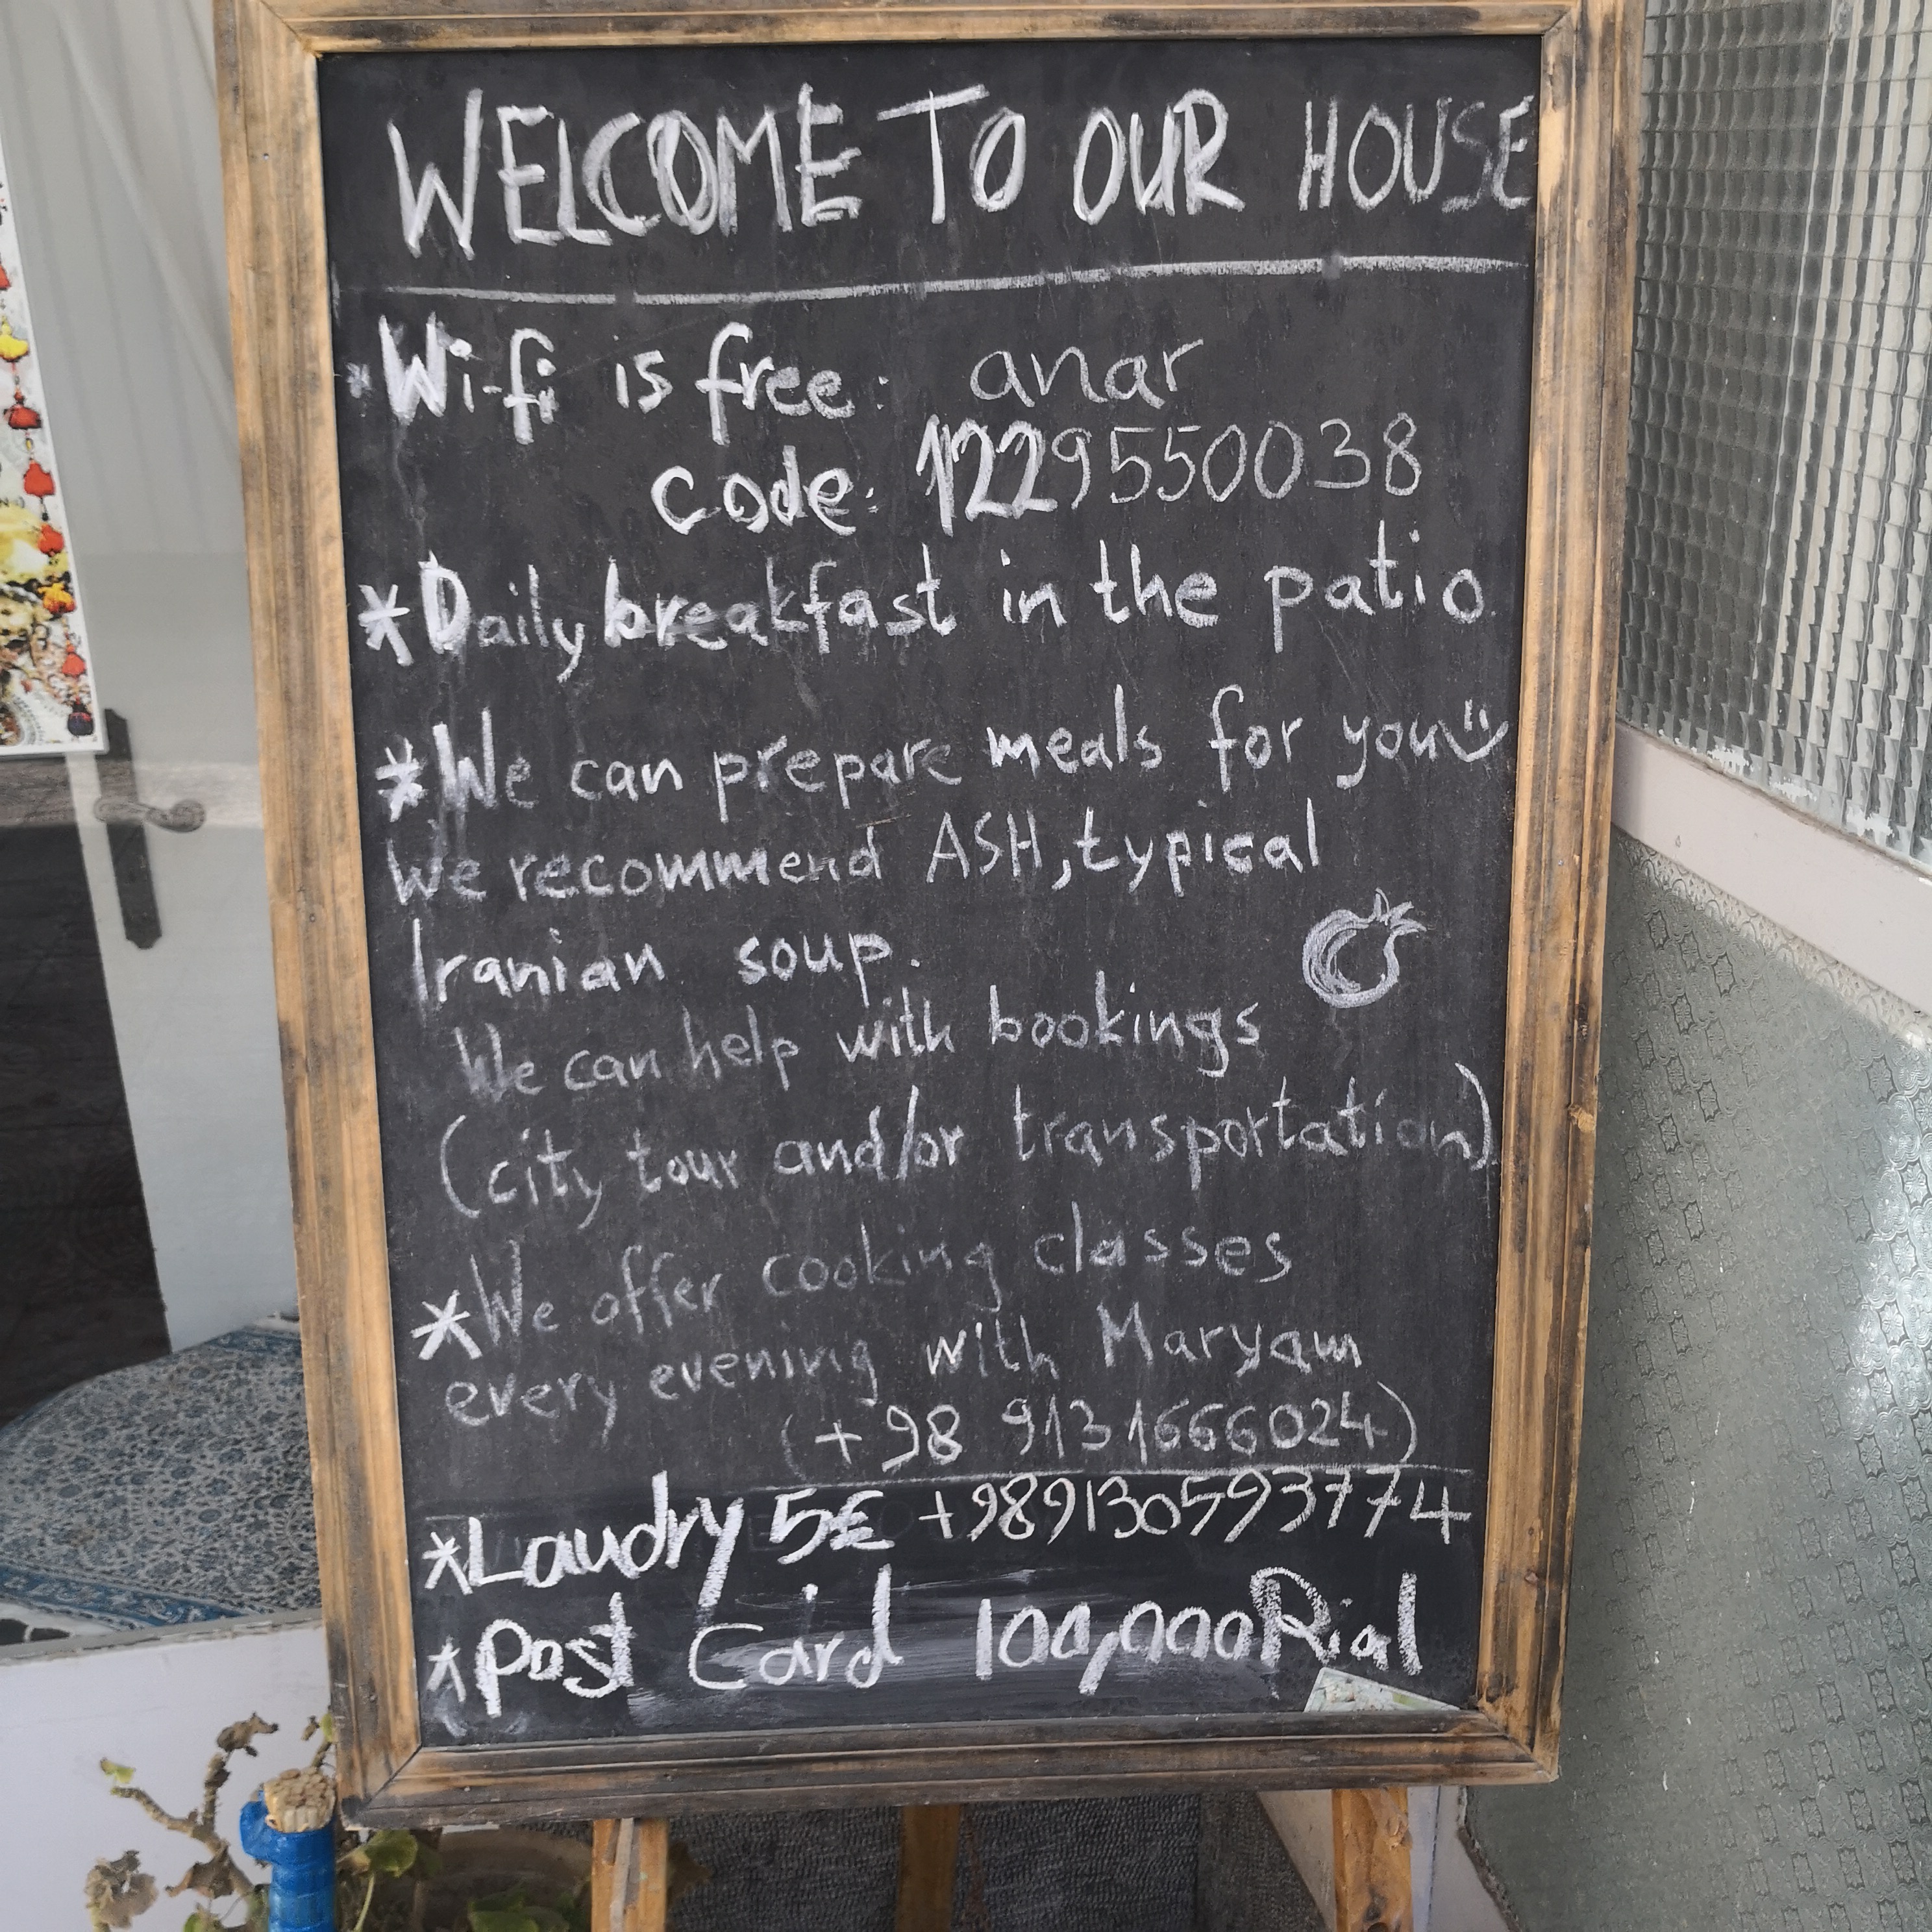 WELCOME TO OUR HOUSE
* Wi-fi is free: anar
code: 1229550038
* Daily breakfast in the patio.
* We can prepare meals for you
We recommend ASH, typical
Iranian soup.
We can help with bookings
(city tour and/or transportation)
* We offer cooking classes
every evening with Maryam
(+98 9131666024)
* Laudry 5€ +989130593774
* Post Card 100,000 Rial